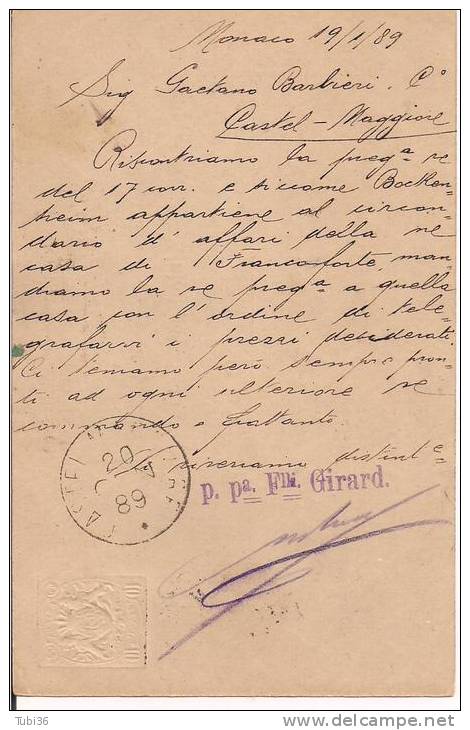 Monaco 19/1/89
Sig Gaetano Barbieri. Co
Castel-Maggiore
Riscontriamo la prega re
del 17 corr. e siccome Bocken-
heim appartiene al circon-
dario d'affari della ne
casa di Francoforte, man-
diamo la re prega a quella
casa con l'ordine di tele-
grafarvi i prezzi desiderati.
Ci teniamo però sempre pron-
ti ad ogni ulteriore re
commando e frattanto
Vi riveriamo distinte
CASTEL
20
89
p. pa. Flli Girard.
10 10
Tubi36
delcampe.net